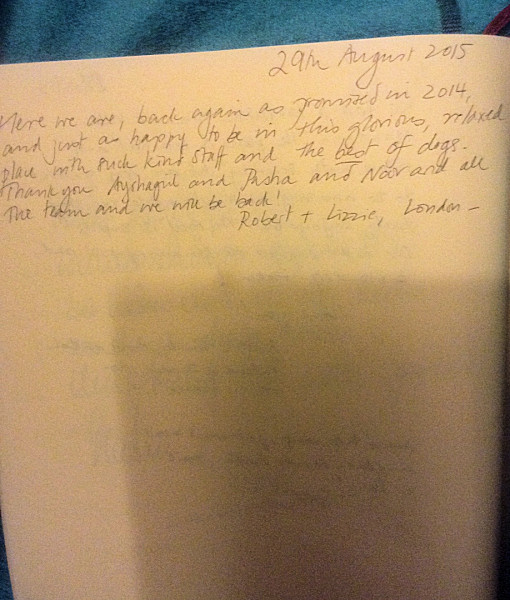 29th August 2015
Here we are, back again as promised in 2014,
and just as happy to be in this glorious, relaxed
place with such kind staff and the best of dogs.
Thank you Ayshagul and Pasha and Noor and all
the team and we will be back!
Robert + Lizzie, London -